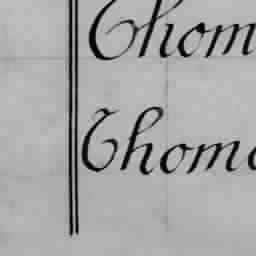 Thom
Thoma